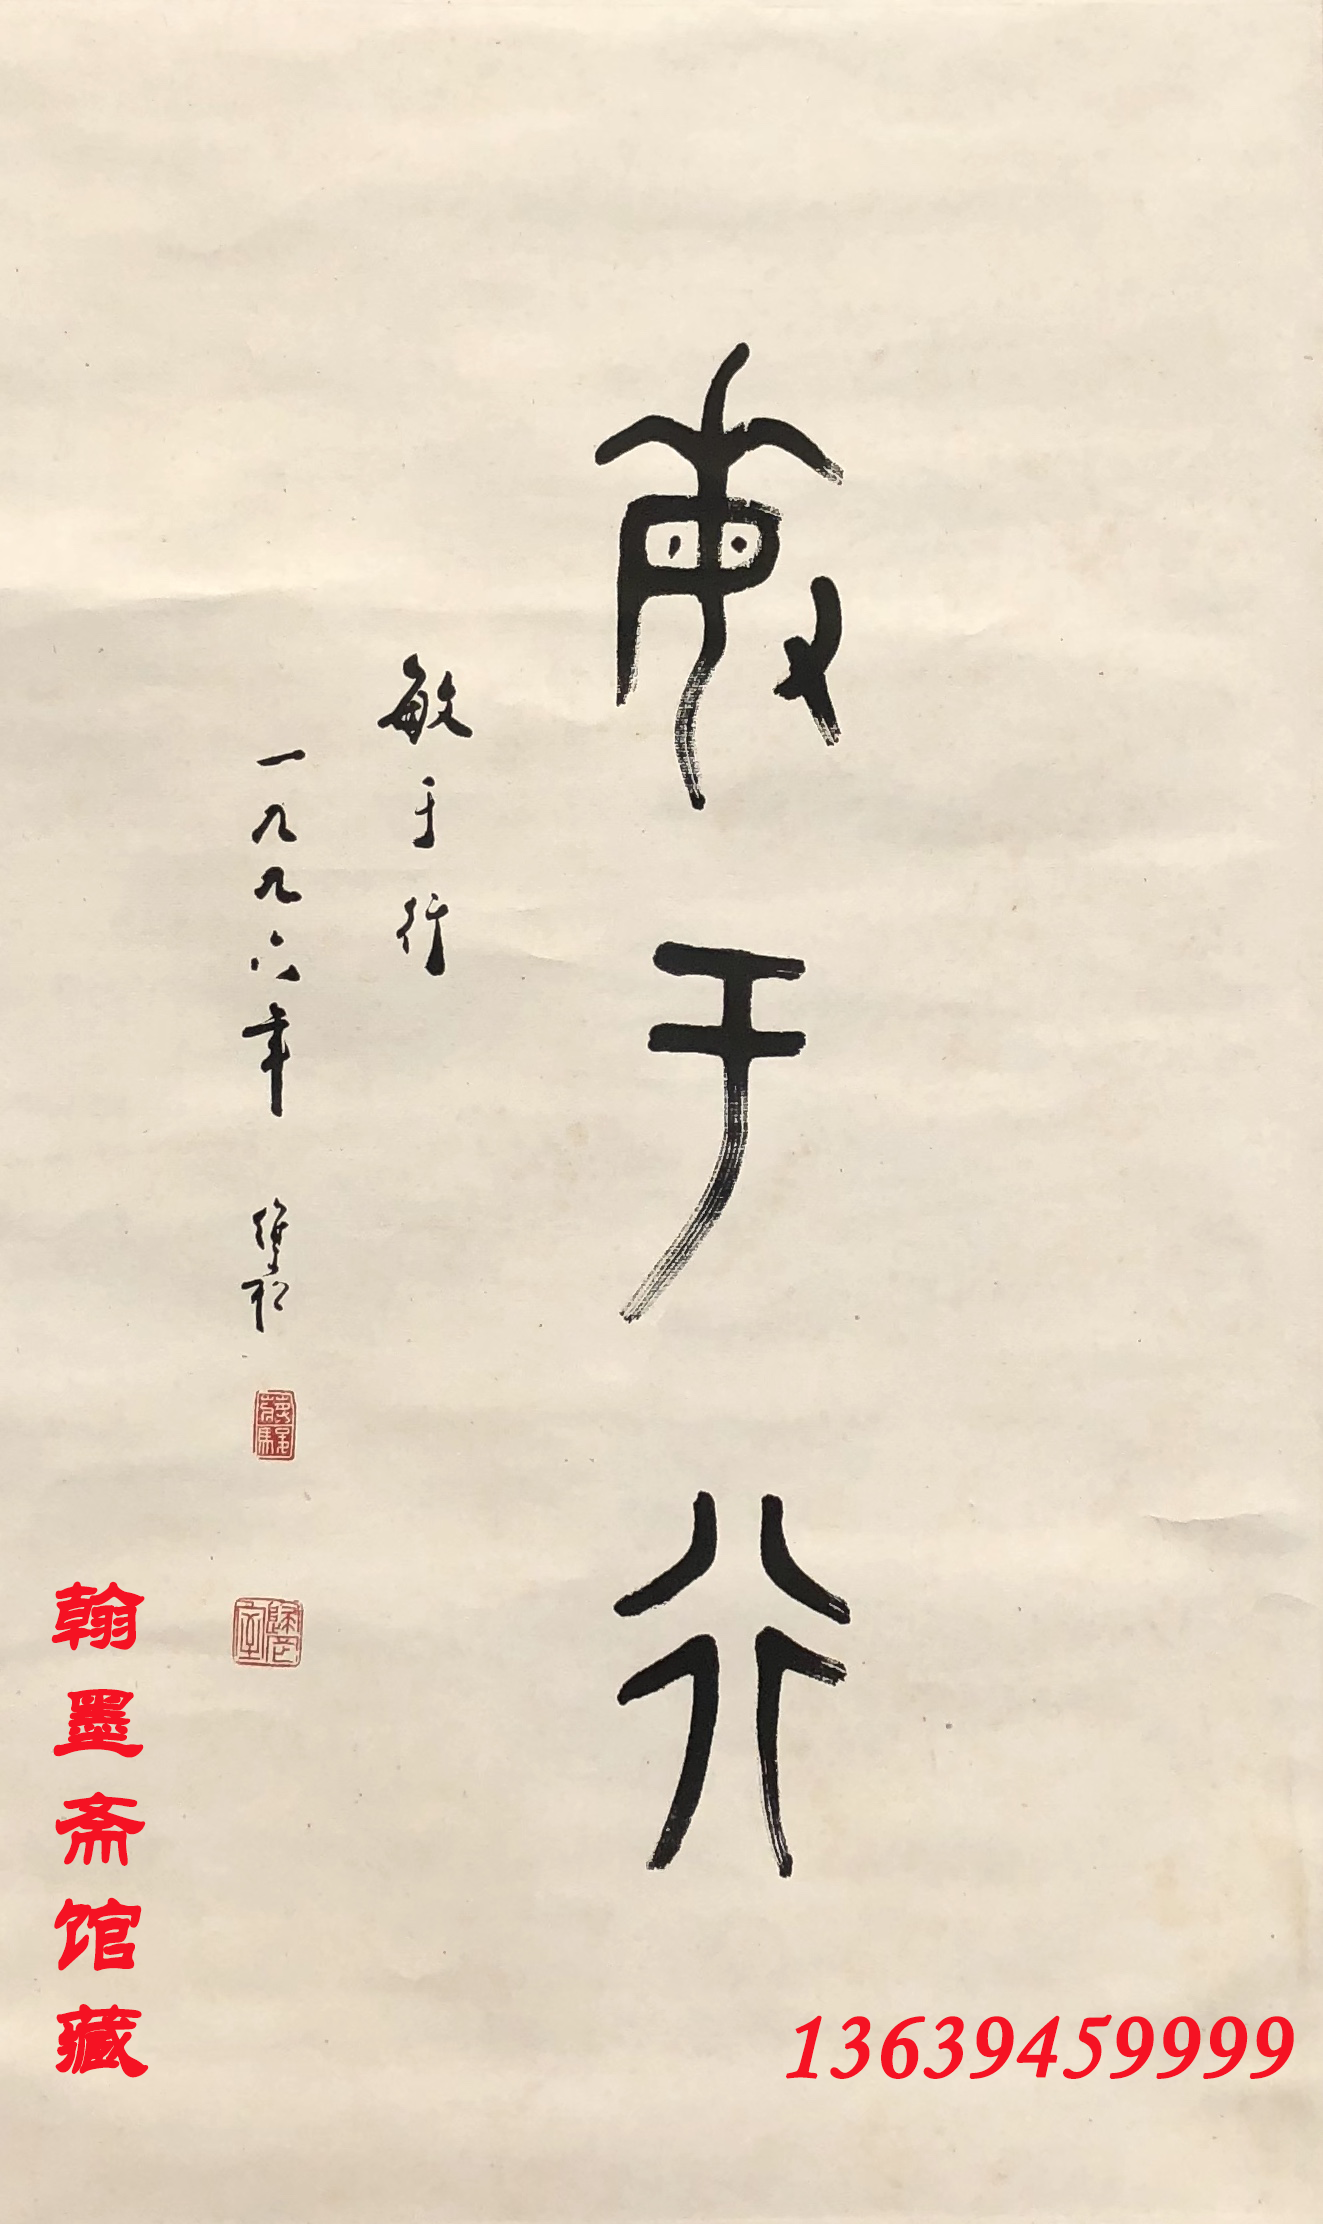 敏于行
敏于行
一九九六年
翰墨斋馆藏
13639459999